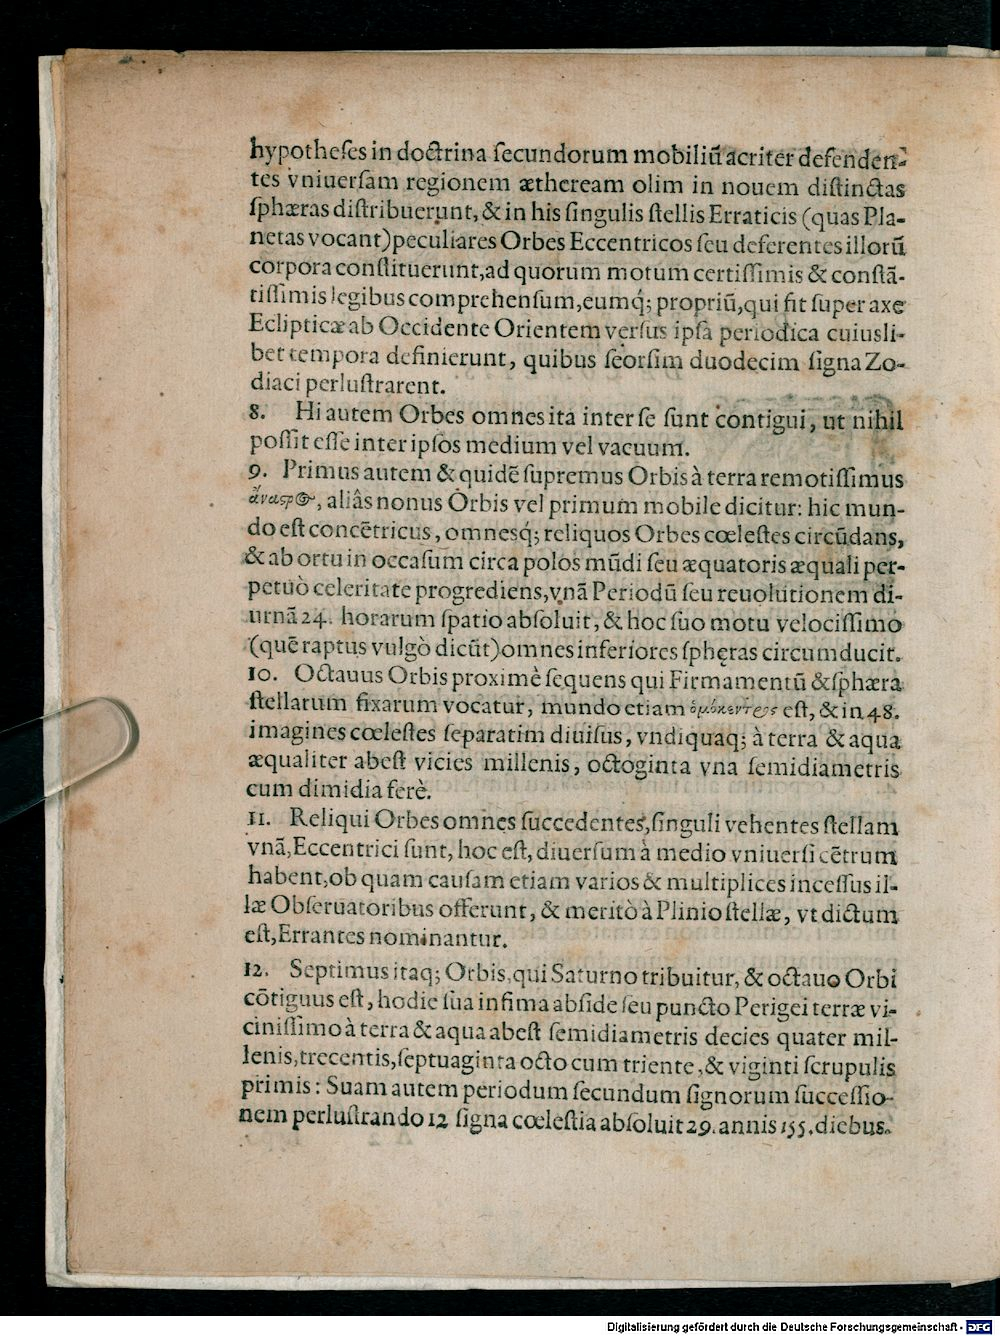 hypotheſes in doctrina ſecundorum mobiliũ acriter defenden-
tes vniuerſam regionem æthereâm olim in nouem diſtinctas
ſphæras diſtribuerunt, & in his ſingulis ſtellis Erraticis (quas Pla-
netas vocant) peculiares Orbes Eccentricos ſeu deferentes illorũ
corpora conſtituerunt, ad quorum motum certiſſimis & conſtã-
tiſſimis legibus comprehenſum, eumq́; propriũ, qui fit ſuper axe
Eclipticæ ab Occidente Orientem verſus ipſa periodica cuiusli-
bet tempora definierunt, quibus ſeorſim duodecim ſigna Zo-
diaci perluſtrarent.
8. Hi autem Orbes omnes ita inter ſe ſunt contigui, ut nihil
poſſit eſſe inter ipſos medium vel vacuum.
9. Primus autem & quidẽ ſupremus Orbis à terra remotiſſimus
ἄναςρος, aliâs nonus Orbis vel primum mobile dicitur: hic mun-
do eſt concẽtricus, omnesq́; reliquos Orbes cœleſtes circũdans,
& ab ortu in occaſum circa polos mũdi ſeu æquatoris æquali per-
petuò celeritate progrediens, vnã Periodũ ſeu reuolutionem di-
urnã 24. horarum ſpatio abſoluit, & hoc ſuo motu velociſſimo
(quẽ raptus vulgò dicũt) omnes inferiores ſphęras circumducit.
10. Octauus Orbis proximè ſequens qui Firmamentũ & ſphæra
ſtellarum fixarum vocatur, mundo etiam est, & in 48.
imagines cœleſtes ſeparatim diuiſus, vndiquaq; à terra & aqua
æqualiter abeſt vicies millenis, octoginta vna ſemidiametris
cum dimidia ferè.
11. Reliqui Orbes omnes ſuccedentes, ſinguli vehentes ſtellam
vnã, Eccentrici ſunt, hoc eſt, diuerſum à medio vniuerſi cẽtrum
habent, ob quam cauſam etiam varios & multiplices inceſſus il-
læ Obſeruatoribus offerunt, & meritò à Plinio ſtellæ, vt dictum
eſt, Errantes nominantur.
12. Septimus itaq; Orbis, qui Saturno tribuitur, & octauo Orbi
cõtiguus eſt, hodie ſua infima abſide ſeu puncto Perigei terræ vi-
ciniſſimo à terra & aqua abeſt ſemidiametris decies quater mil-
lenis, trecentis, ſeptuaginta octo cum triente, & viginti ſcrupulis
primis: Suam autem periodum ſecundum ſignorum ſucceſſio-
nem perluſtrando 12 ſigna cœleſtia abſoluit 29. annis 155. diebus.
Digitalisierung gefördert durch die Deutsche Forschungsgemeinschaft - DFG